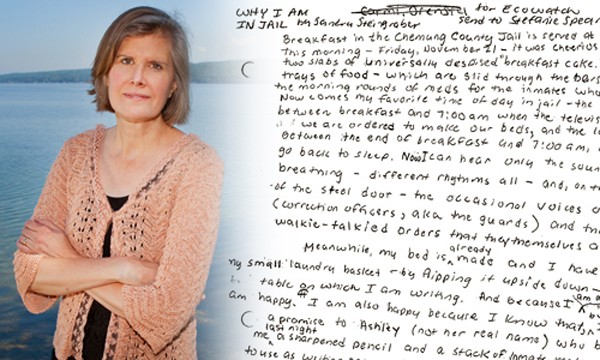 WHY I AM for EcoWatch
IN JAIL by Sandra Steingraber send to Stefanie Spear
Breakfast in the Chemung County Jail is served at
This morning – Friday, November 21 – it was cheerios
two slabs of universally despised "breakfast cake.
trays of food – which are slid through the bars
the morning rounds of meds for the inmates who
Now comes my favorite time of day in jail – the
between breakfast and 7:00 am when the televis
we are ordered to make our beds, and the
Between the end of breakfast and 7:00 am,
go back to sleep. Now I can hear only the soun
breathing – different rhythms all – and, on th
of the steel door – the occasional voices o
(correction officers, aka the guards) and th
walkie-talkied orders that they themselves a
Meanwhile, my bed is already made and I have
my small laundry basket – by flipping it upside down –
table on which I am writing. And because I am
am happy. I am also happy because I know that
a promise to Ashley (not her real name) who
last night
me a sharpened pencil and a stack of inmate
to use as writing